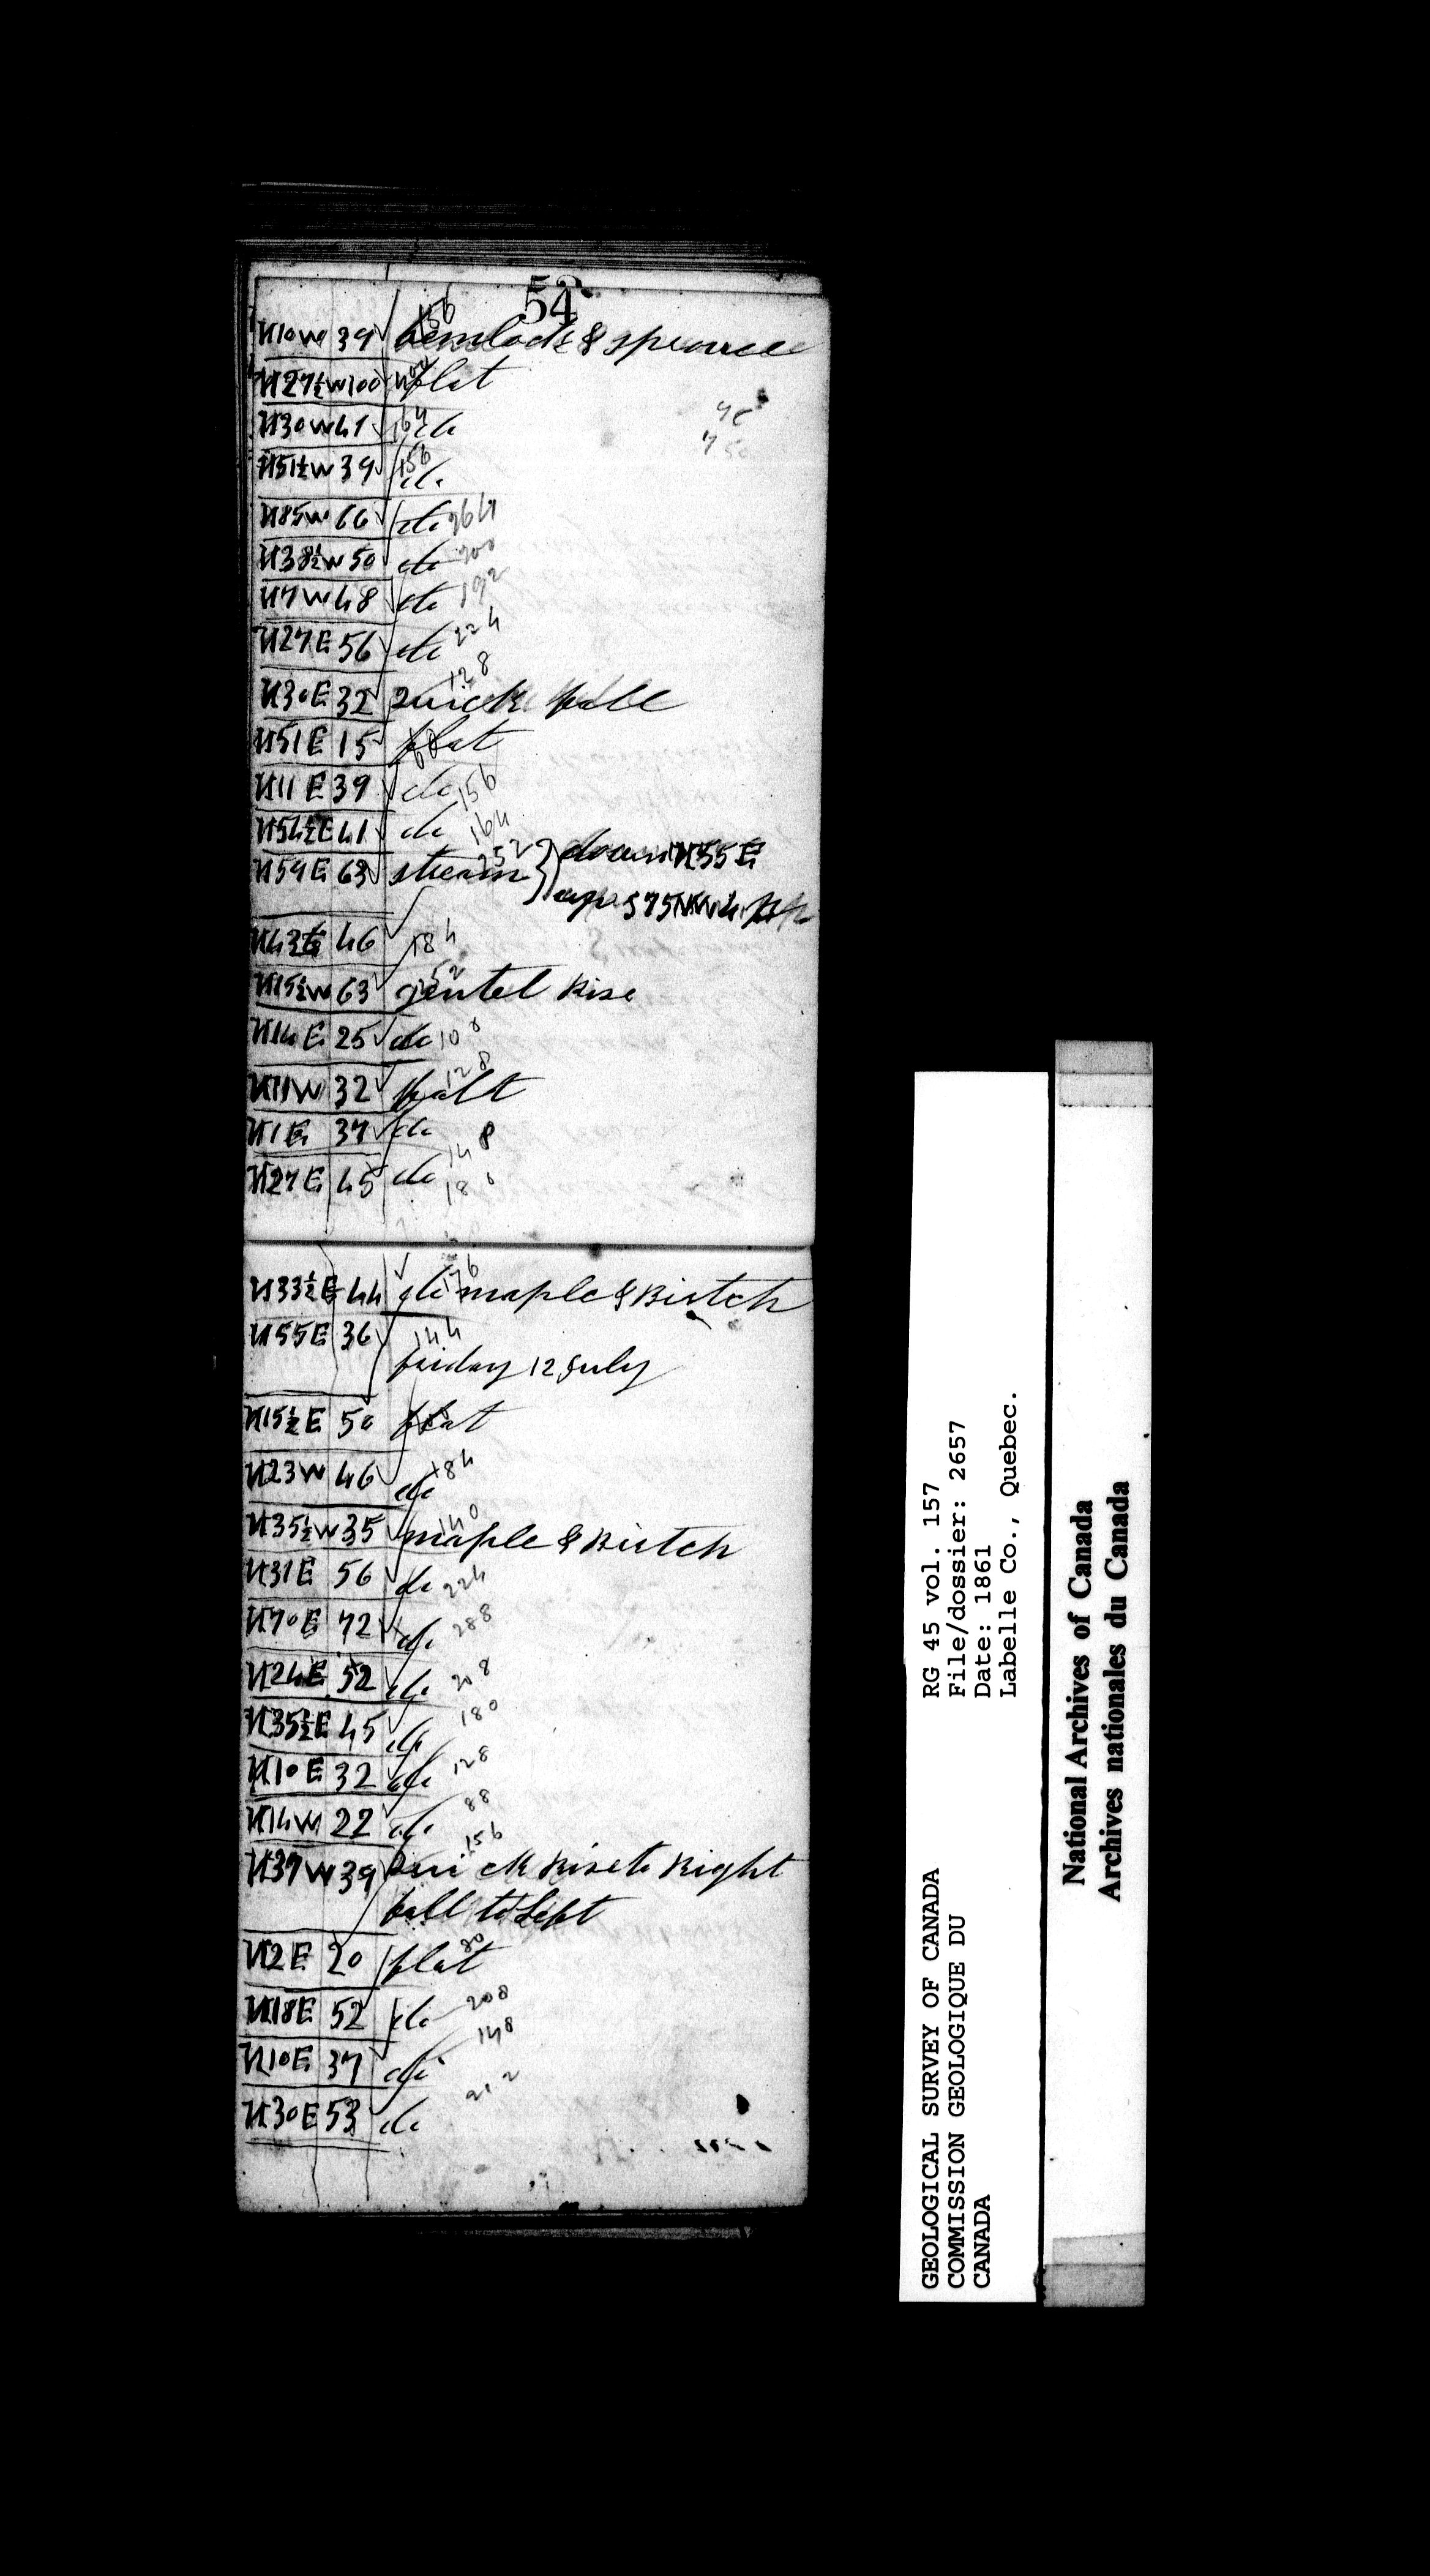 54
N10W 39 156 hemlock & sprucee
N27½W 100 400 flat
N30W 41 164 do
N51½W 39 156 do
N85W 66 do 264
N38½W 50 do 200
N7W 48 do 192
N27E 56 do 224
N30E 32 quick fall 128
N51E 15 flat 60
N11E 39 do 156
N54½E 41 do 164
N59E 63 stream 252 } down N55E
up S75W
46 184
N15½W 63 gentel Rise 252
N14E 25 do 100
N11W 32 falt 128
N1E 37 do 148
N27E 45 do 180
N33½E 44 do 176 maple & Birtch
N55E 36 144
friday 12 July
N15½E 50 flat
N23W 46 do 184
N35½W 35 140 maple & Birtch
N31E 56 do 224
N70E 72 do 288
N24E 52 do 208
N35½E 45 do 180
N10E 32 do 128
N14W 22 do 88
N37W 39 156 Quick Rise to Right
fall to Left
N2E 20 flat 80
N18E 52 do 208
N10E 37 do 148
N30E 53 do 212
GEOLOGICAL SURVEY OF CANADA
COMMISSION GEOLOGIQUE DU
CANADA
RG 45 vol. 157
File/dossier: 2657
Date: 1861
Labelle Co., Quebec.
National Archives of Canada
Archives nationales du Canada